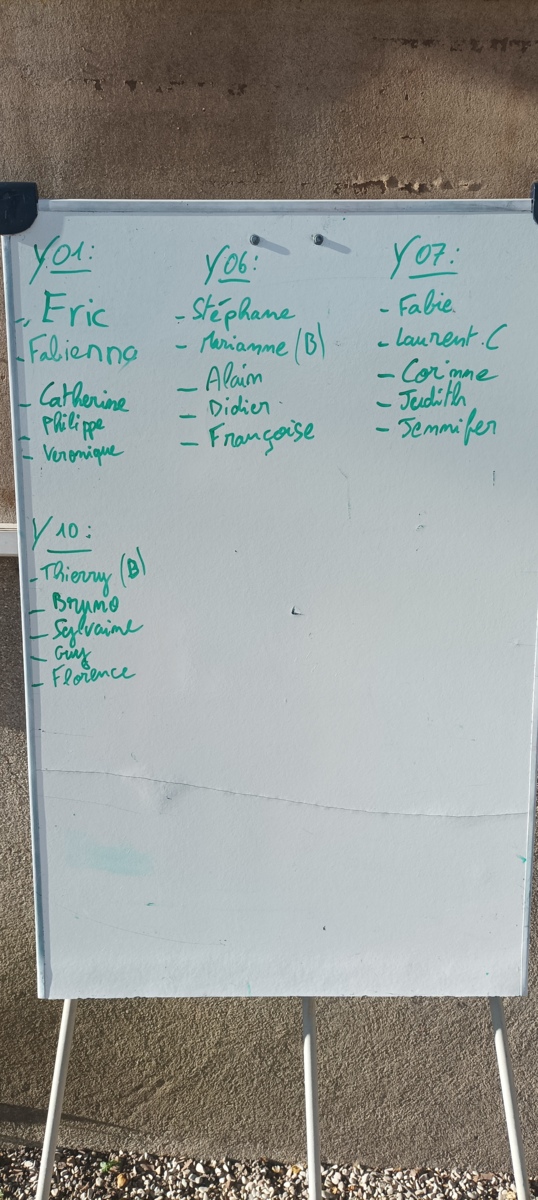 Y01:
- Eric
- Fabienne
- Catherine
- Philippe
- Veronique
Y06:
- Stéphane
- Marianne (B)
- Alain
- Didier
- Françoise
Y07:
- Fabie.
- Laurent.C
- Corinne
- Judith
- Jennifer
Y10:
- Thierry (B)
- Bruno
- Sylvaine
- Guy
- Florence